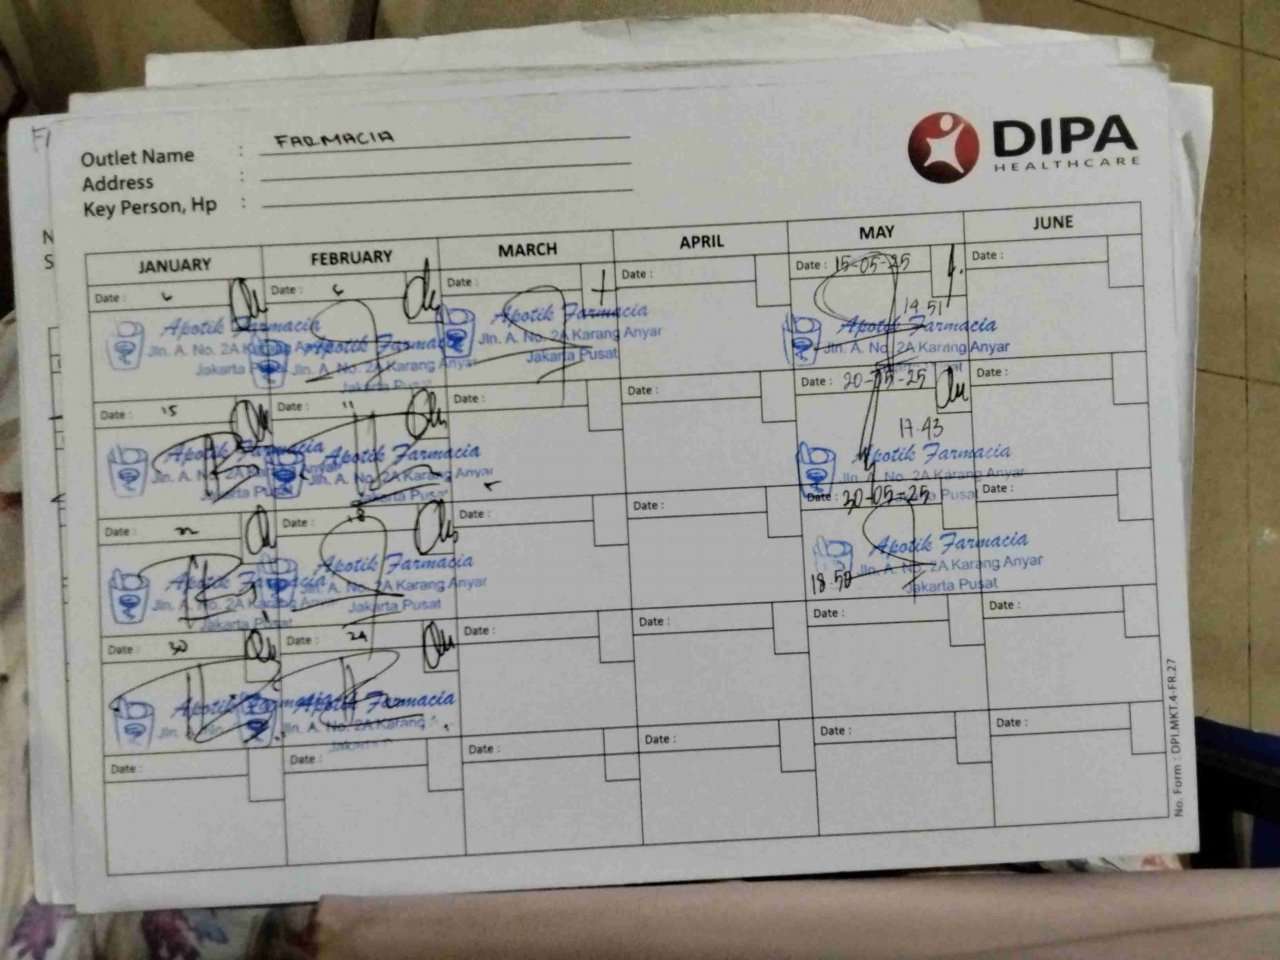 DIPA
HEALTHCARE
Outlet Name : FARMACIA
Address :
Key Person, Hp :
JANUARY FEBRUARY MARCH APRIL MAY JUNE
Date : 6 Date : 6 Date : Date : Date : 15-05-25 Date :
14.51
Apotik Farmacia Apotik Farmacia Apotik Farmacia Apotik Farmacia
Jln. A. No. 2A Karang Anyar Jln. A. No. 2A Karang Anyar Jln. A. No. 2A Karang Anyar Jln. A. No. 2A Karang Anyar
Jakarta Jakarta Pusat Jakarta Pusat Pusat
Date : 15 Date : 11 Date : Date : Date : 20-05-25 Date :
17.43
Apotik Farmacia Apotik Farmacia Apotik Farmacia
Jln. A. No. 2A Karang Anyar Jln. A. No. 2A Karang Anyar Jln. A. No. 2A Karang Anyar
Jakarta Pusat Jakarta Pusat Pusat
Date : Date : 18 Date : Date : Date : 30-05-25 Date :
Apotik Farmacia Apotik Farmacia Apotik Farmacia
Jln. A. No. 2A Karang Anyar Jln. A. No. 2A Karang Anyar Jln. A. No. 2A Karang Anyar
Jakarta Pusat Jakarta Pusat Jakarta Pusat
18.50
Date : 30 Date : 24 Date : Date : Date : Date :
Apotik Farmacia Apotik Farmacia
Jln. A. No. Jln. A. No. 2A Karang
Jakarta
Date : Date : Date : Date : Date : Date :
No. Form : DPI.MKT.4-FR.27